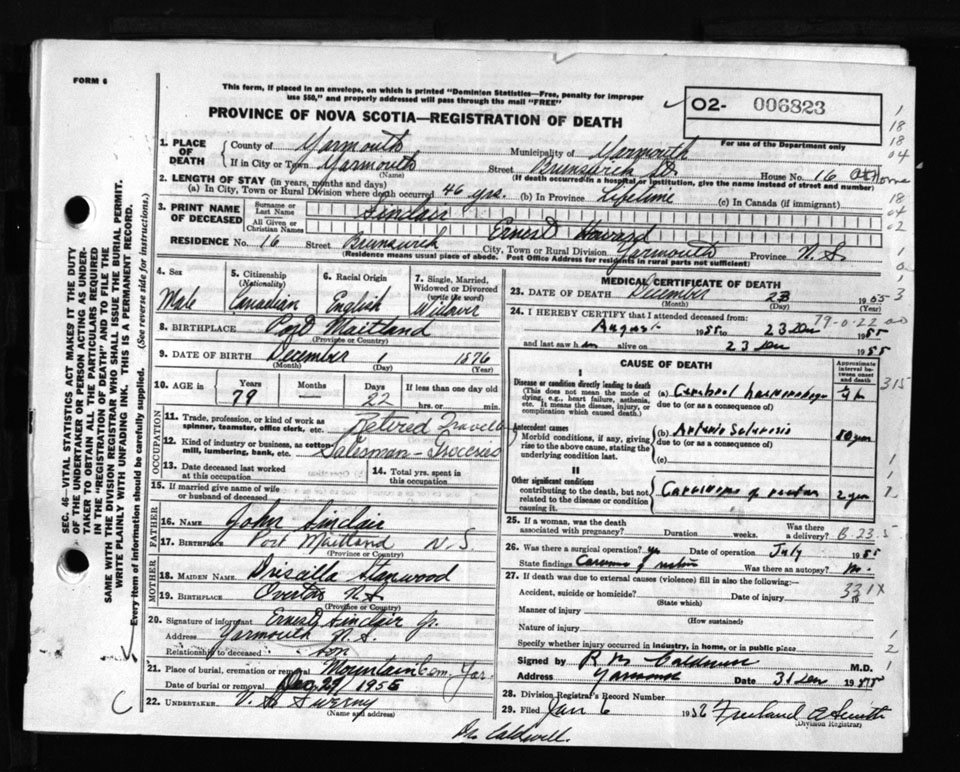 FORM 6
This form, if placed in an envelope, on which is printed "Dominion Statistics—Free, penalty for improper
use $50," and properly addressed will pass through the mail "FREE"
PROVINCE OF NOVA SCOTIA—REGISTRATION OF DEATH
O2- 006823
For use of the Department only
1. PLACE OF DEATH
County of Yarmouth Municipality of Yarmouth
If in City or Town Yarmouth Street Brunswick St. House No. 16 At Home
(Name) (If death occurred in a hospital or institution, give the name instead of street and number)
2. LENGTH OF STAY (in years, months and days)
(a) In City, Town or Rural Division where death occurred 46 yrs. (b) In Province Lifetime (c) In Canada (if immigrant)
3. PRINT NAME OF DECEASED
Surname or Last Name Sinclair
All Given or Christian Names Ernest Howard
RESIDENCE No. 16 Street Brunswick City, Town or Rural Division Yarmouth Province N.S.
(Residence means usual place of abode. Post Office Address for residents in rural parts not sufficient)
4. Sex 5. Citizenship (Nationality) 6. Racial Origin 7. Single, Married, Widowed or Divorced (write the word)
Male Canadian English Widower
8. BIRTHPLACE Port Maitland
(Province or Country)
9. DATE OF BIRTH December 1 1876
(Month) (Day) (Year)
10. AGE in Years Months Days If less than one day old
79 — 22 hrs. or min.
OCCUPATION
11. Trade, profession, or kind of work as spinner, teamster, office clerk, etc. Retired Traveller
12. Kind of industry or business, as cotton mill, lumbering, bank, etc. Salesman - Groceries
13. Date deceased last worked at this occupation
14. Total yrs. spent in this occupation
15. If married give name of wife or husband of deceased
FATHER
16. NAME John Sinclair
17. BIRTHPLACE Port Maitland N.S.
(Province or Country)
MOTHER
18. MAIDEN NAME Priscilla Stanwood
19. BIRTHPLACE Overton N.S.
(Province or Country)
20. Signature of informant Ernest Sinclair Jr.
Address Yarmouth N.S.
Relationship to deceased son
21. Place of burial, cremation or removal Mountain Cem. Yar.
Date of burial or removal Dec. 27 1955
22. UNDERTAKER V. S. Sweeny
(Name and address)
MEDICAL CERTIFICATE OF DEATH
23. DATE OF DEATH December 23 1955
(Month) (Day) (Year)
24. I HEREBY CERTIFY that I attended deceased from:
79-0-22
August 1955 to 23 Dec 1955
and last saw him alive on 23 Dec 1955
CAUSE OF DEATH
Approximate interval between onset and death
I
Disease or condition directly leading to death
(This does not mean the mode of dying, e.g., heart failure, asthenia, etc. It means the disease, injury, or complication which caused death.)
(a) Cerebral haemorrhage
due to (or as a consequence of)
Antecedent causes
Morbid conditions, if any, giving rise to the above cause, stating the underlying condition last.
(b) Arterio Sclerosis 10 years
due to (or as a consequence of)
(c)
II
Other significant conditions
contributing to the death, but not related to the disease or condition causing it.
Carcinoma of rectum 2 years
25. If a woman, was the death associated with pregnancy? Duration weeks. Was there a delivery? B-23.5
26. Was there a surgical operation? yes Date of operation July 1955
State findings Carcinoma of rectum Was there an autopsy? no.
27. If death was due to external causes (violence) fill in also the following:—
Accident, suicide or homicide? Date of injury 19
331X
(State which)
Manner of injury
(How sustained)
Nature of injury
Specify whether injury occurred in industry, in home, or in public place
Signed by R M Caldwell M.D.
Address Yarmouth Date 31 Dec 1955
28. Division Registrar's Record Number
29. Filed Jan 6 1956 Freeland A Smith
(Division Registrar)
Dr. Caldwell.
SEC. 46—VITAL STATISTICS ACT MAKES IT THE DUTY
OF THE UNDERTAKER OR PERSON ACTING AS UNDER-
TAKER TO OBTAIN ALL THE PARTICULARS REQUIRED
IN THE "REGISTRATION OF DEATH" AND TO FILE THE
SAME WITH THE DIVISION REGISTRAR WHO SHALL ISSUE THE BURIAL PERMIT.
WRITE PLAINLY WITH UNFADING INK. THIS IS A PERMANENT RECORD.
Every item of information should be carefully supplied. (See reverse side for instructions.)
1
18
18
04
18
04
02
1
0
3
315
1
1
2
1